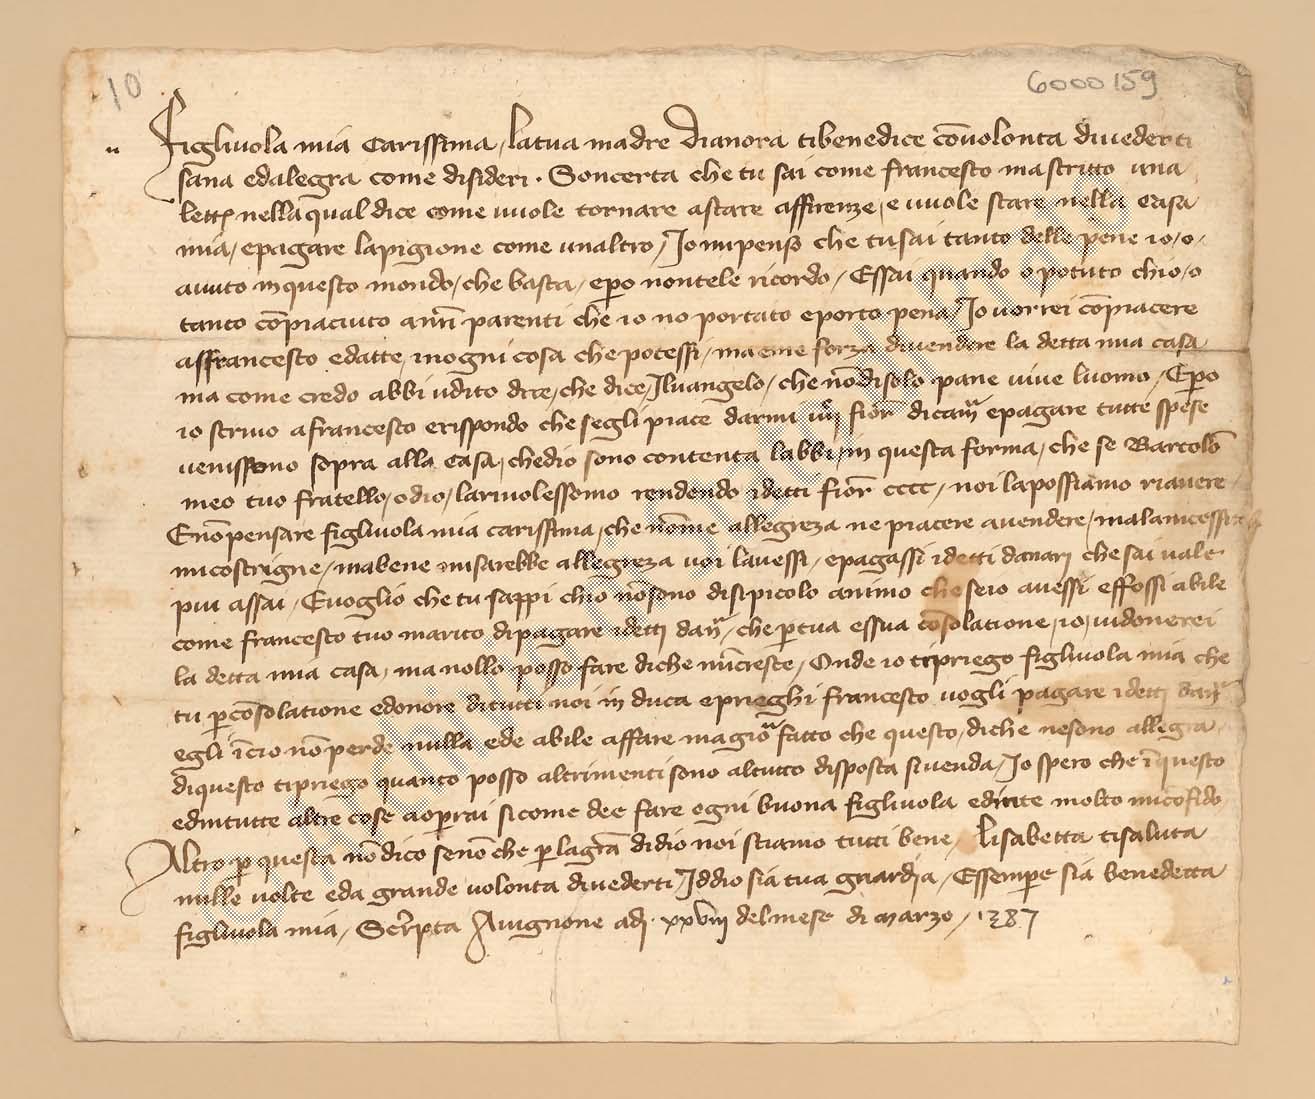 10
6000159
Figliuola mia carissima / la tua madre Dianora ti benedice cō uolonta di uederti
sana ed alegra come disideri · Son certa che tu sai come francesco ma scritto una
letta nella qual dice come uuole tornare a stare affirenze / e uuole stare nella casa
mia / e pagare la pigione come unaltro / Io mi penso che tu sai tanto delle pene io / o /
auuto in questo mondo / che basta / epero non tele ricordo / Essai quando o potuto chio / o
tanto cōpiaciuto a miei parenti che io no portato e porto pena / Io uorrei cōpiacere
affrancesco edatte / in ogni cosa che potessi / ma eme forza di uendere la detta mia casa
ma come credo abbi udito dire / che dice / Iluangelo / che nō di solo pane uiue luomo / Epero
io scriuo a francesco e rispondo che segli piace darmi fior di camā e pagare tutte spese
uenissono sopra alla casa / chedio sono contenta labbi / in questa forma / che se Bartolō
meo tuo fratello / odio / lariuolessemo rendendo i detti fior cccc / noi la possiamo riauere
E nō pensare figliuola mia carissima / che nōme allegreza ne piacere a uendere / ma la nicessita
mi costrigne / ma bene mi sarebbe allegreza uoi lauessi / e pagassi i detti danari che sai uale
piu assai / E uoglio che tu sappi chio nō sono di si picolo animo che se io auessi effossi abile
come francesco tuo marito di pagare i detti danā / che p tua essua cōsolatione / io / ui donerei
la detta mia casa / ma nollo posso fare di che mincresce / Onde io ti priego figliuola mia che
tu p cōsolatione ed onore di tutti noi in duca e prieghi francesco uogli pagare i detti danā
egli īcio nō perde nulla ed e abile affare magiōr fatto che questo / di che ne sono allegra
di questo ti priego quanto posso altrimenti sono al tutto disposta si uenda / Io spero che ī questo
ed in tutte altre cose aoperrai si come dee fare ogni buona figliuola ed in te molto mi cōfido
Altro p questa nō dico se nō che p la graā didio noi stiamo tutti bene / Lisabetta ti saluta
mille uolte ed a grande uolonta di uederti / Iddio sia tua guardia / Essempre sia benedetta
figliuola mia / Scripta Auignone adj · xxviij del mese di marzo / 1387